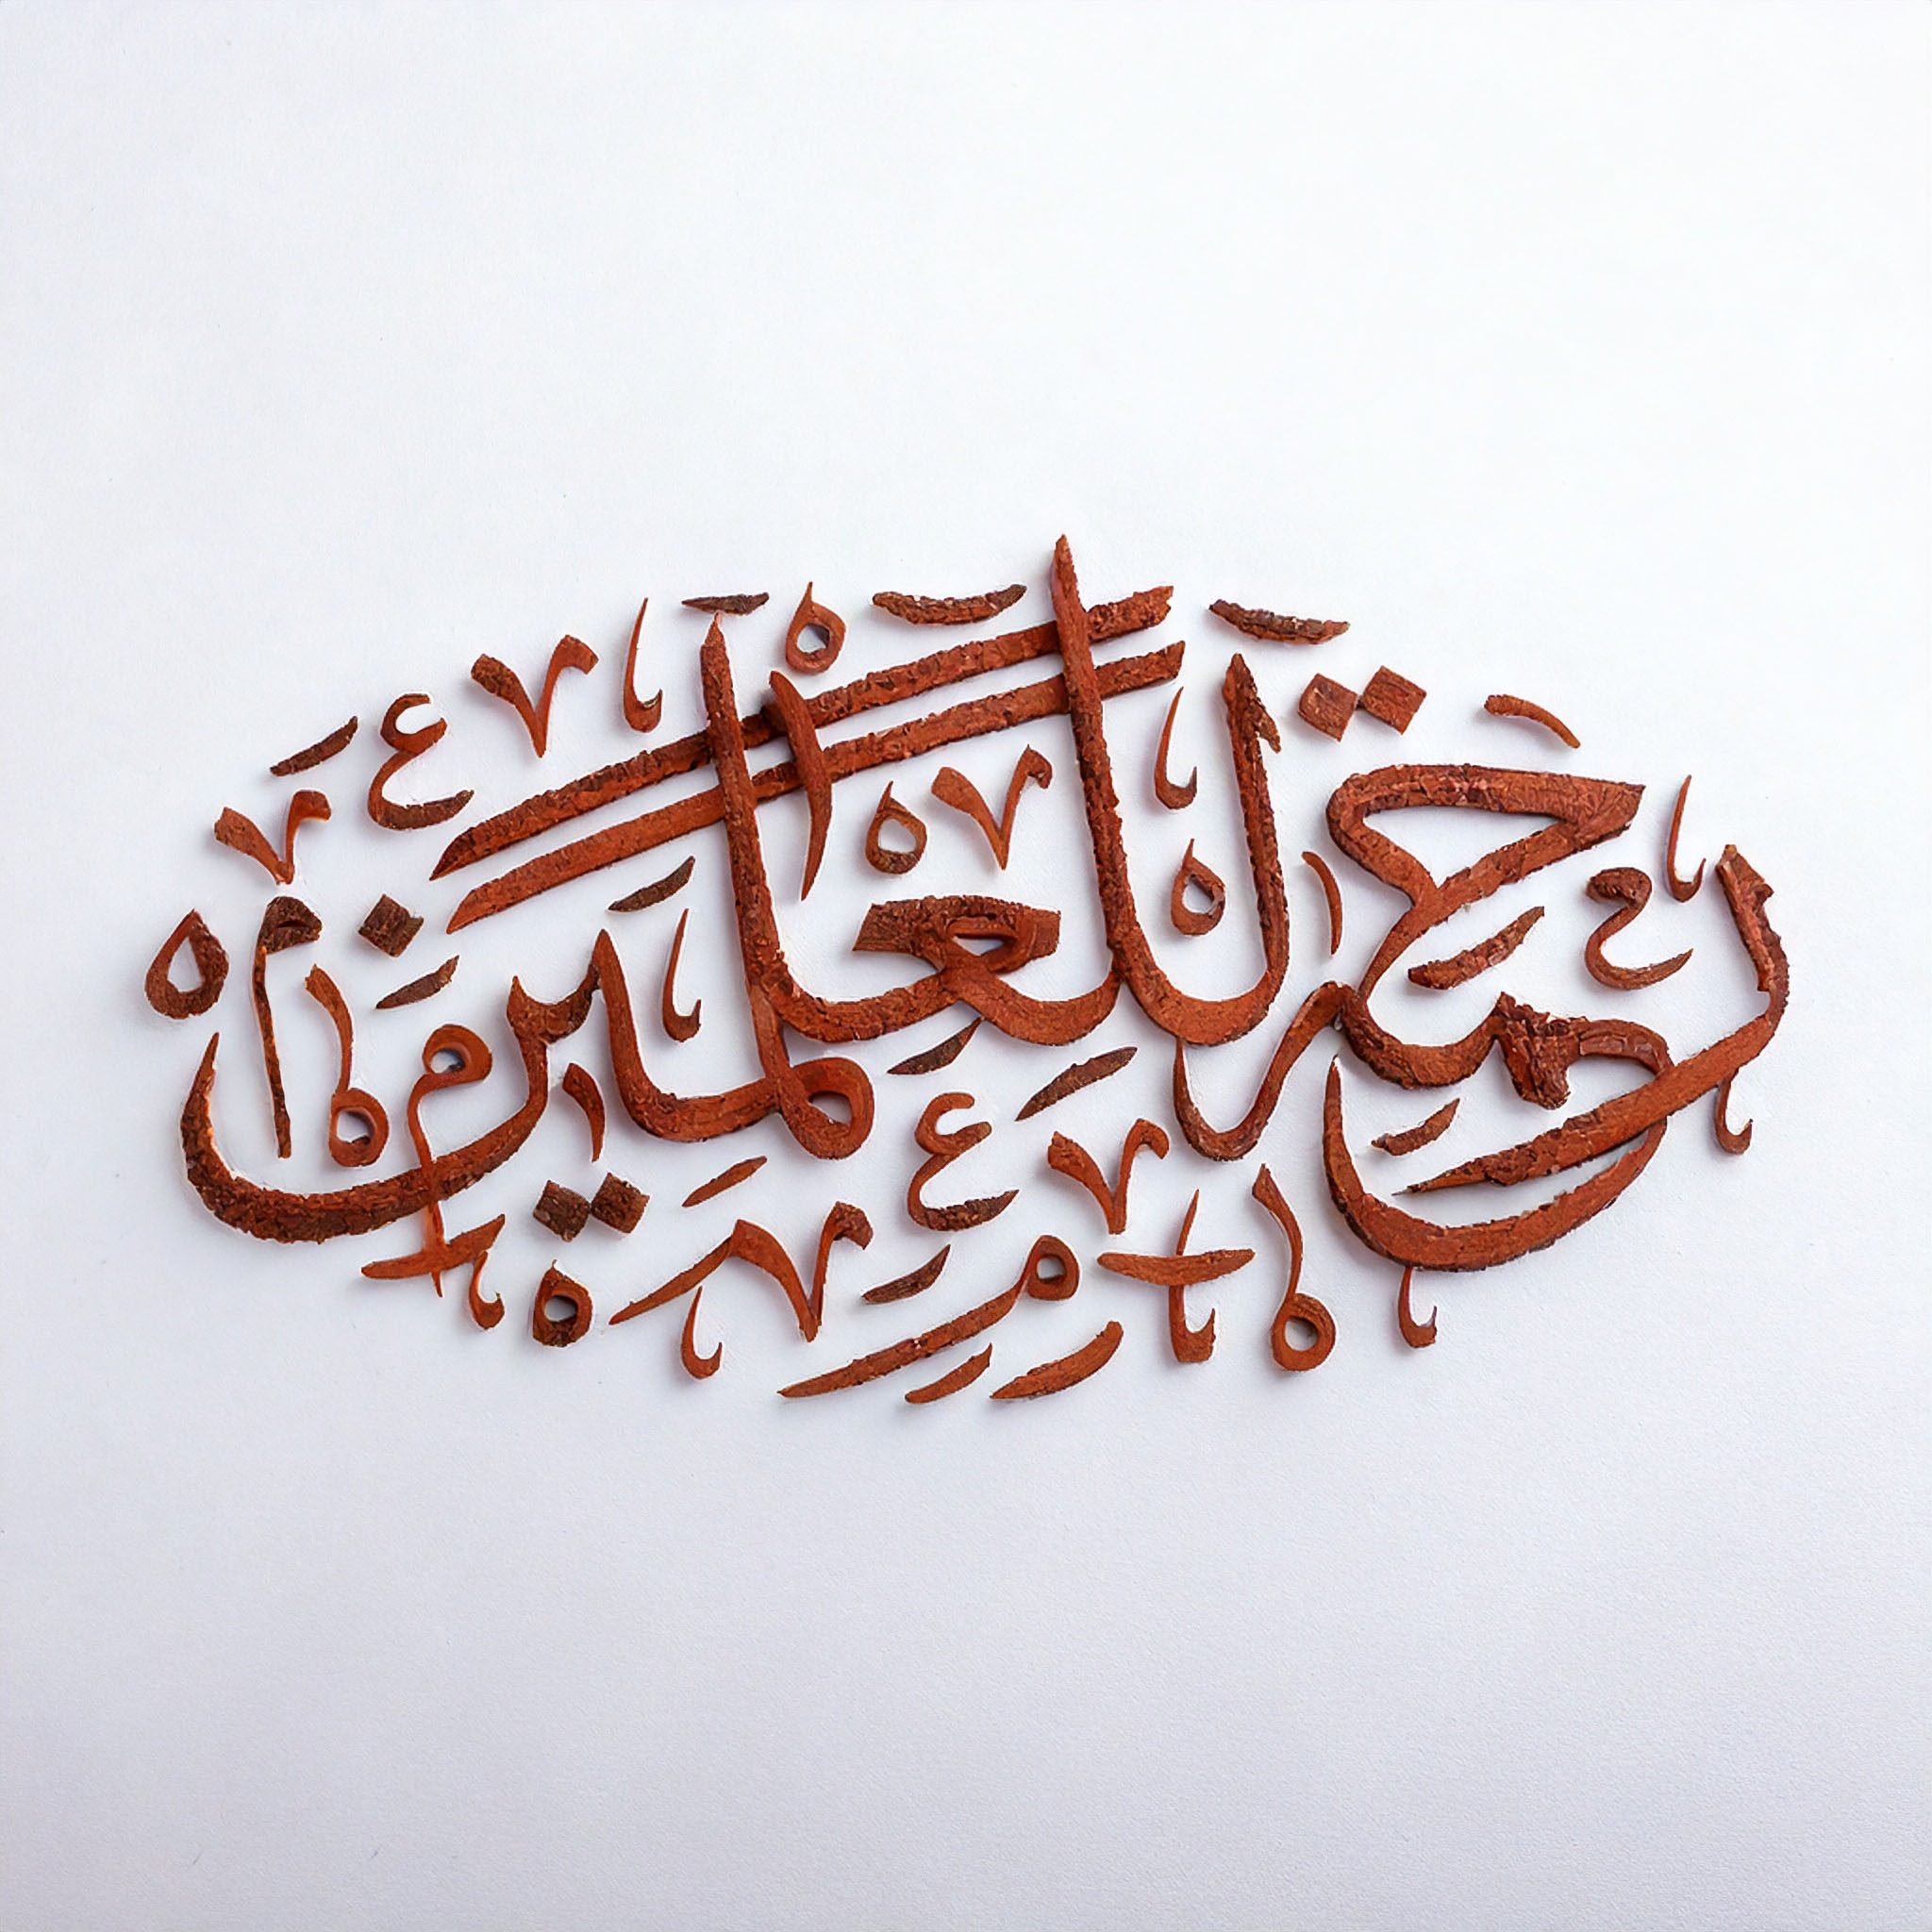 رحمة للعالمين